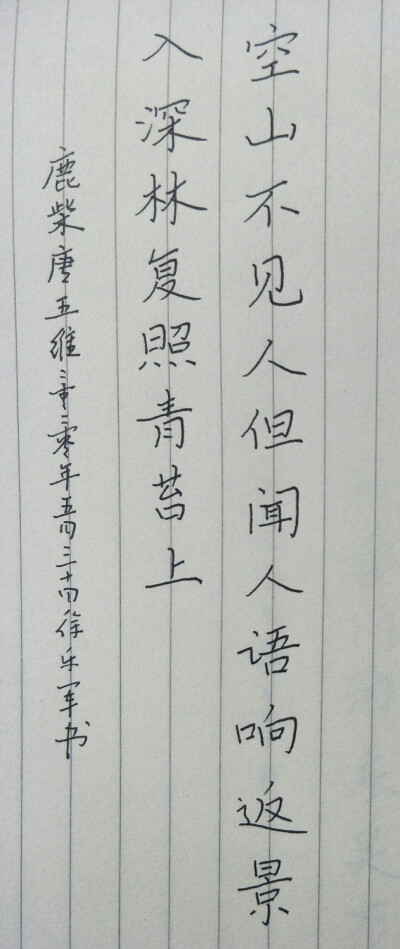 空山不见人但闻人语响返景
入深林复照青苔上
鹿柴唐王维二零二零年五月三十日徐乐军书